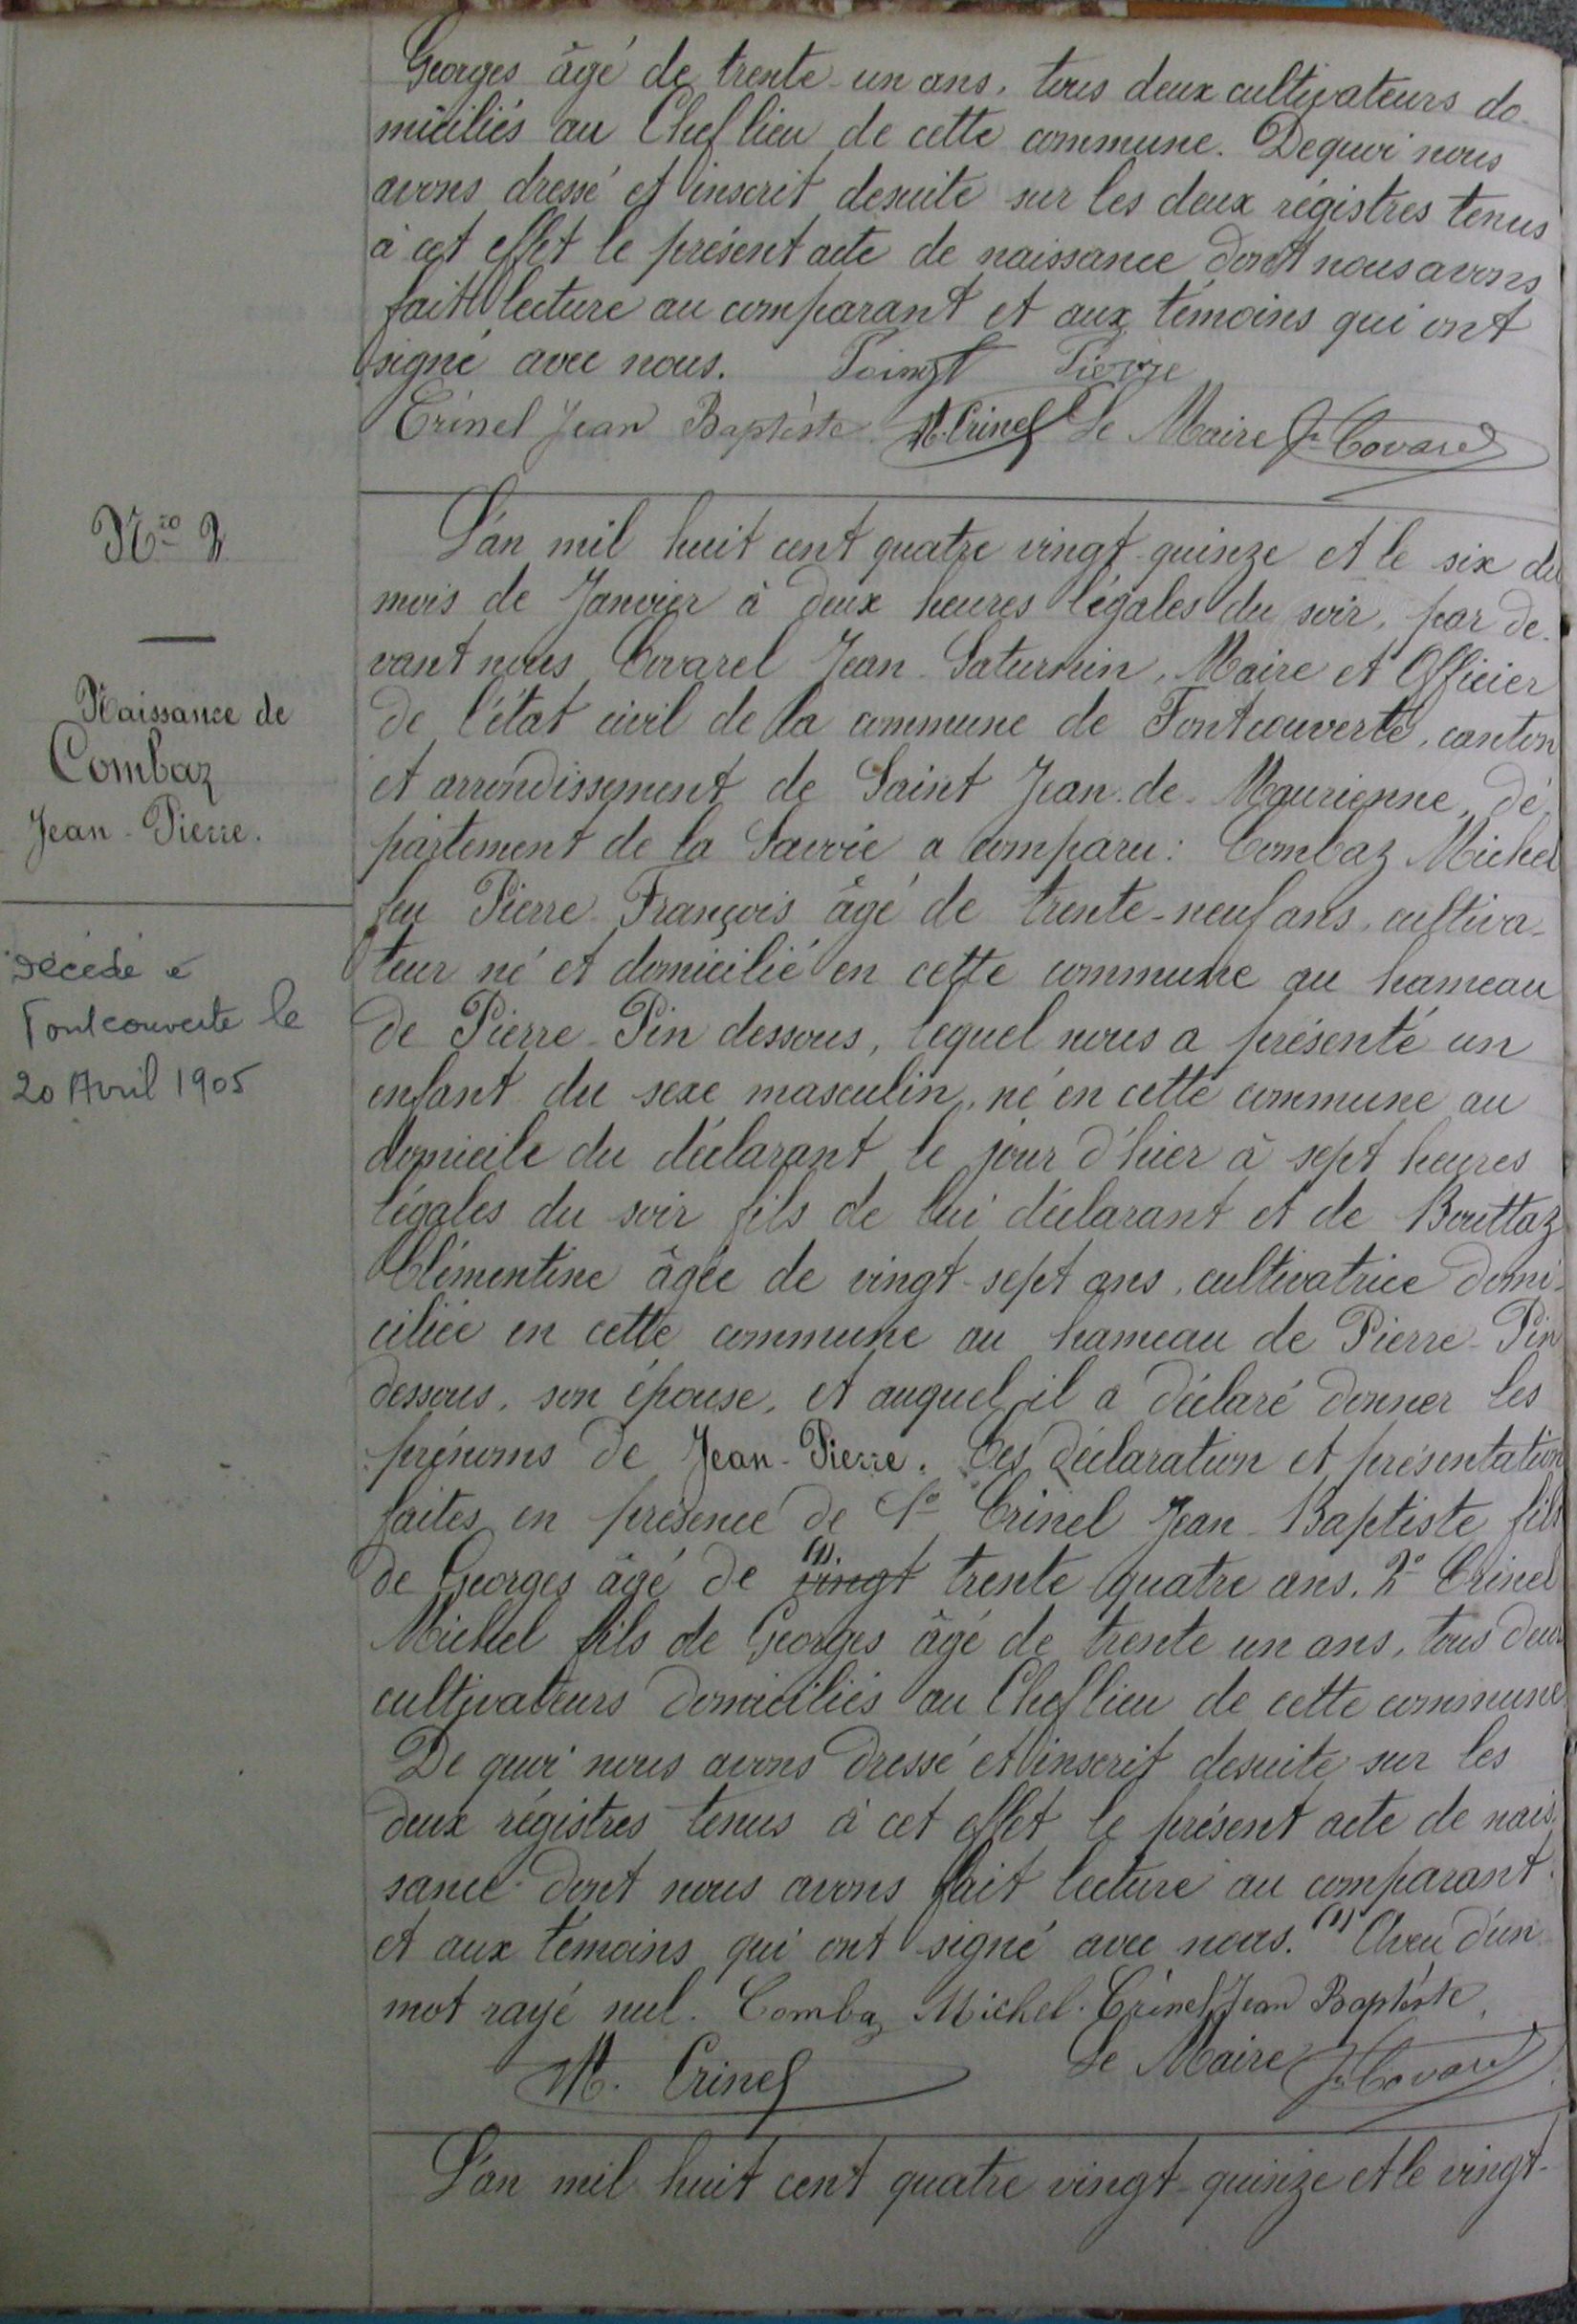 Georges âgé de trente-un ans, tous deux cultivateurs do-
miciliés au Chef lieu de cette commune. Dequoi nous
avons dressé et inscrit desuite sur les deux régistres tenus
à cet effet le présent acte de naissance dont nous avons
fait lecture au comparant et aux témoins qui ont
signé avec nous. Pierre
Crinel Jean Baptiste M. Crinel Le Maire Jn Covarel
Nro 2
Naissance de
Combaz
Jean-Pierre.
Décédé à
Fontcouverte le
20 Avril 1905
L'an mil huit cent quatre vingt-quinze et le six du
mois de Janvier à deux heures légales du soir, par de-
vant nous Covarel Jean-Saturnin, Maire et Officier
de l'état civil de la commune de Fontcouverte, canton
et arrondissement de Saint Jean-de-Maurienne, dé-
partement de la Savoie a comparu: Combaz Michel
feu Pierre-François âgé de trente-neuf ans, cultiva-
teur né et domicilié en cette commune au hameau
de Pierre-Pin dessous, lequel nous a présenté un
enfant du sexe masculin, né en cette commune au
domicile du déclarant le jour d'hier à sept heures
légales du soir fils de lui déclarant et de Bouttaz
Clémentine âgée de vingt-sept ans, cultivatrice domi-
ciliée en cette commune au hameau de Pierre-Pin
dessous, son épouse, et auquel il a déclaré donner les
prénoms de Jean-Pierre. Ces déclaration et présentation
faites en présence de 1º Crinel Jean-Baptiste fils
de Georges âgé de (1). vingt trente quatre ans, 2º Crinel
Michel fils de Georges âgé de trente un ans, tous deux
cultivateurs domiciliés au Chef lieu de cette commune
De quoi nous avons dressé et inscrit desuite sur les
deux régistres tenus à cet effet le présent acte de nais-
sance dont nous avons fait lecture au comparant
et aux témoins qui ont signé avec nous. (1) Aveu d'un
mot rayé nul. Combaz Michel. Crinel Jean Baptiste.
M. Crinel Le Maire Jn Covarel
L'an mil huit cent quatre vingt-quinze et le vingt-